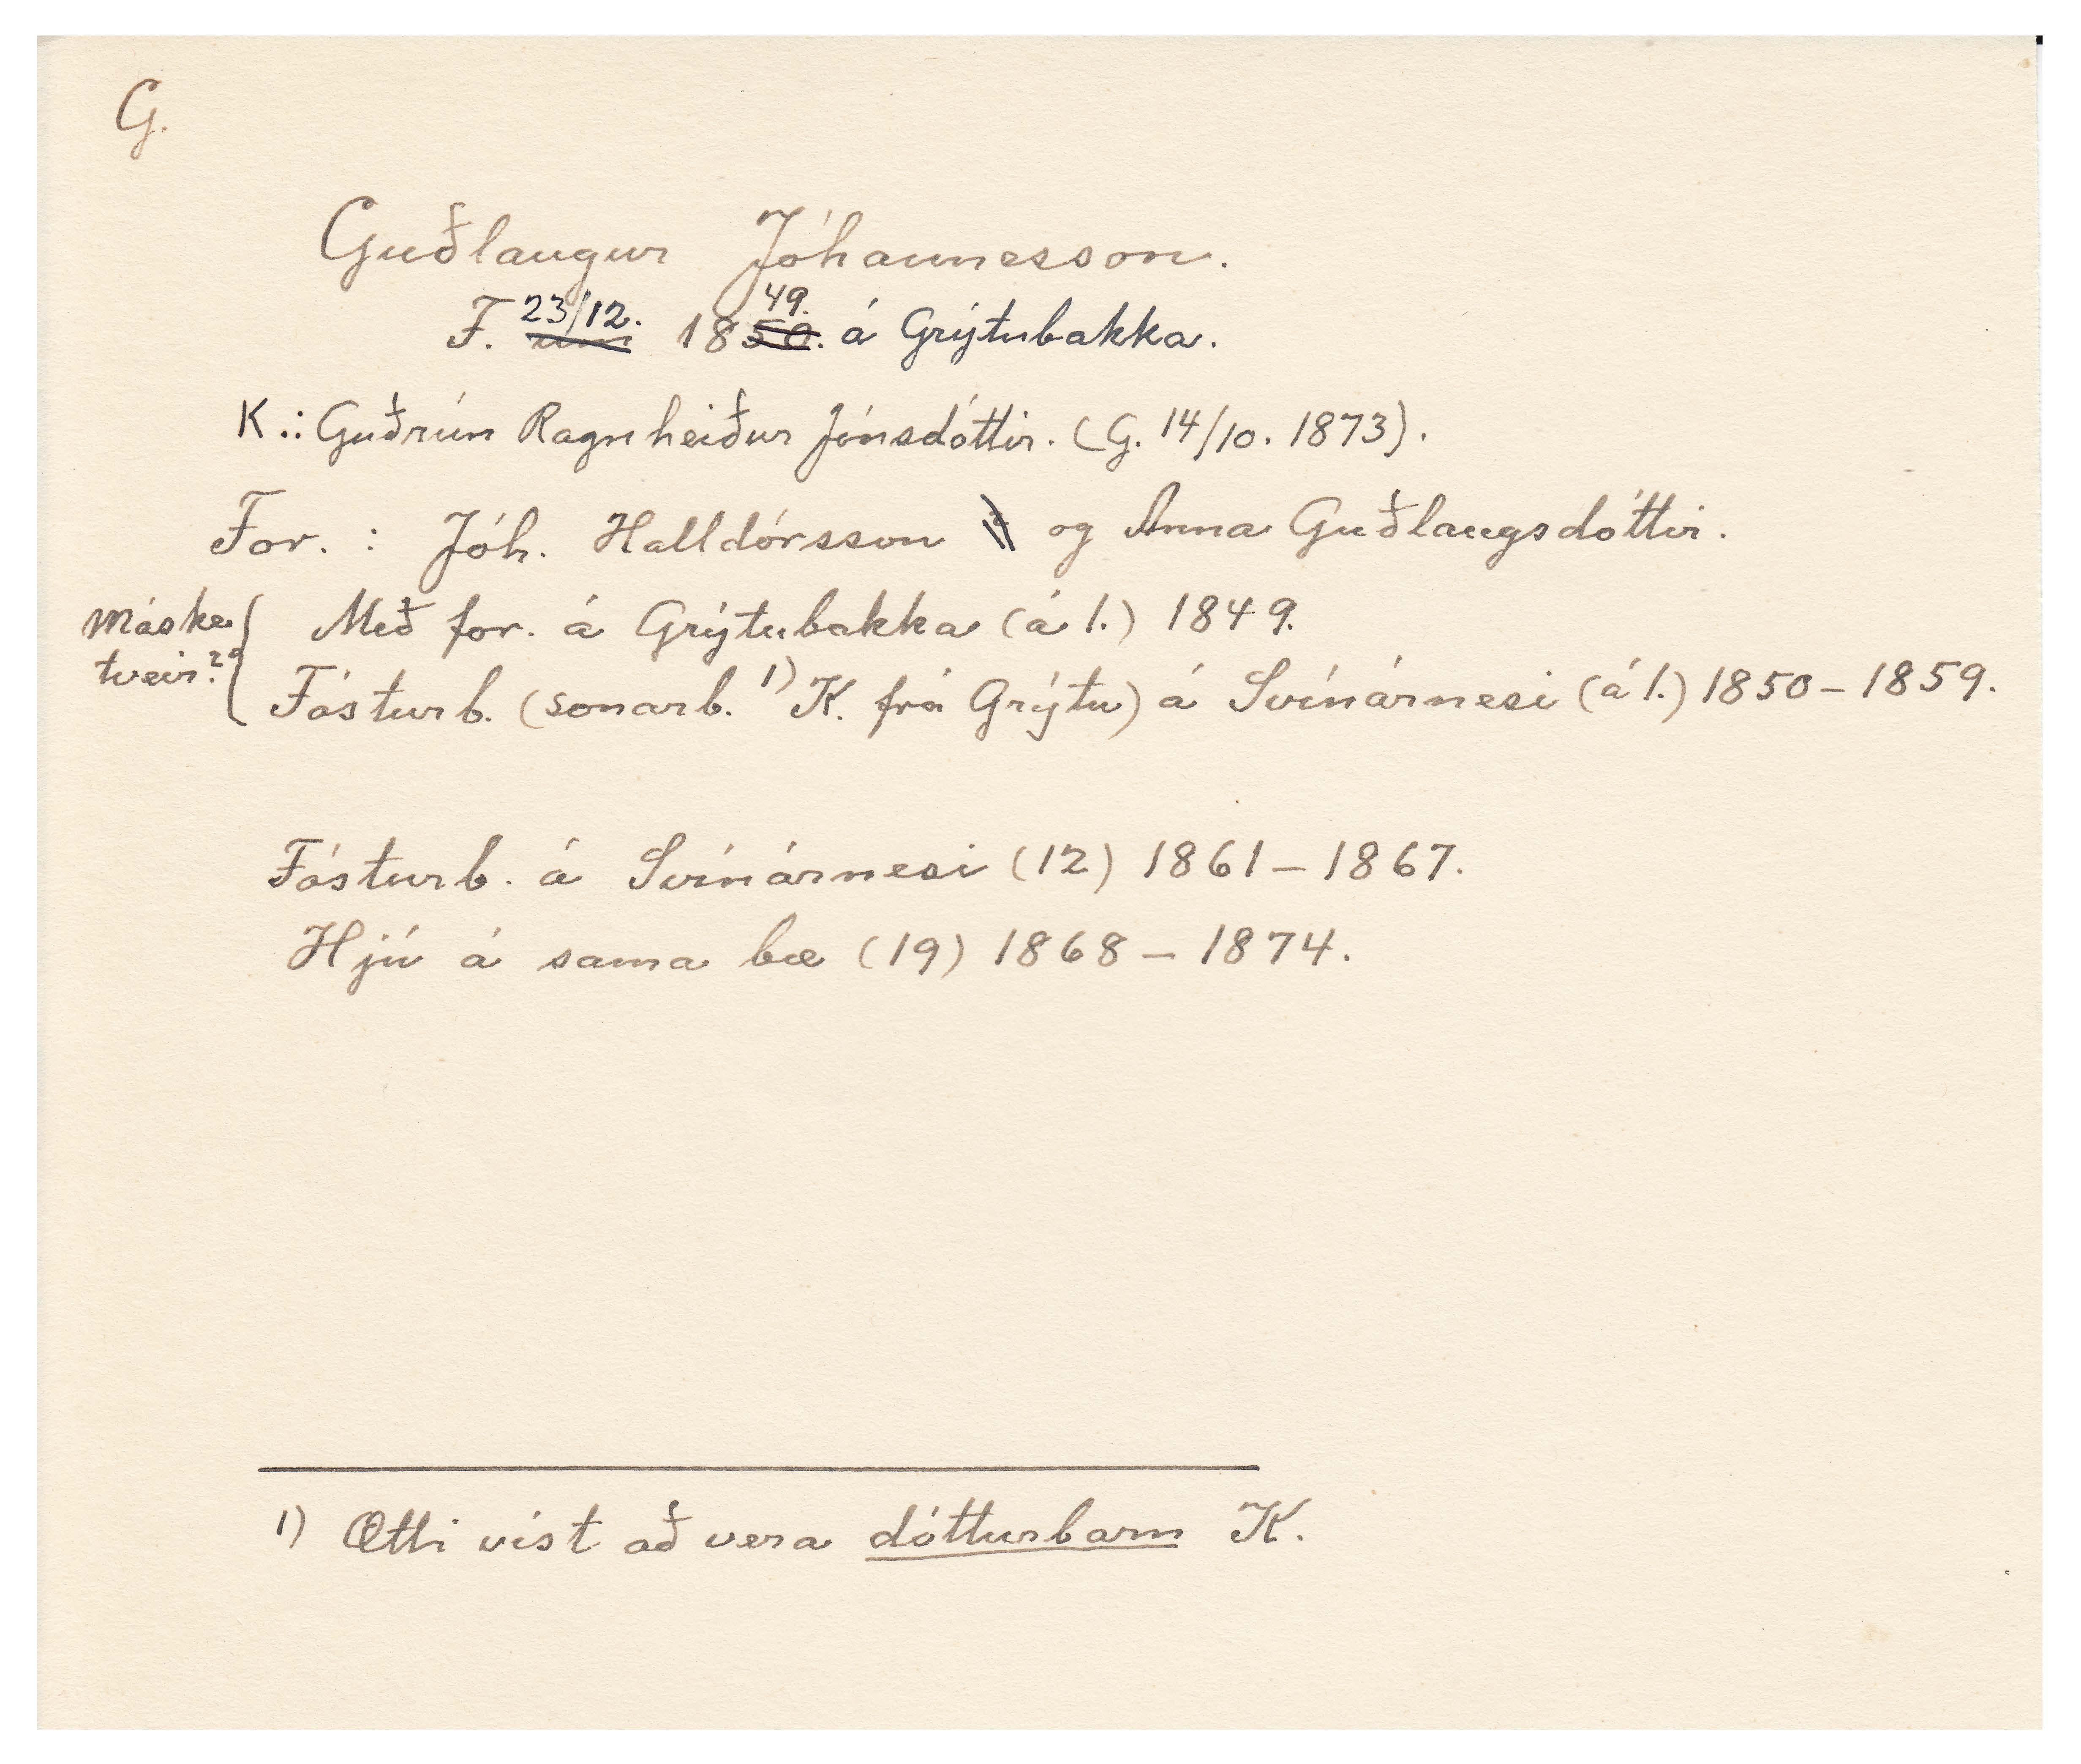 G.
Guðlaugur Jóhannesson.
F. 23/12. 1849. á Grýtubakka.
K.: Guðrún Ragnheiður Jónsdóttir. (G. 14/10. 1873).
For. : Jóh. Halldórsson og Anna Guðlaugsdóttir.
Máske tveir?
Með for. á Grýtubakka (á 1.) 1849.
Fósturb. (sonarb. 1) K. frá Grýtu) á Svínárnesi (á 1.) 1850-1859.
Fósturb. á Svínárnesi (12) 1861-1867.
Hjú á sama bæ (19) 1868-1874.
1) Ætti víst að vera dótturbarn K.